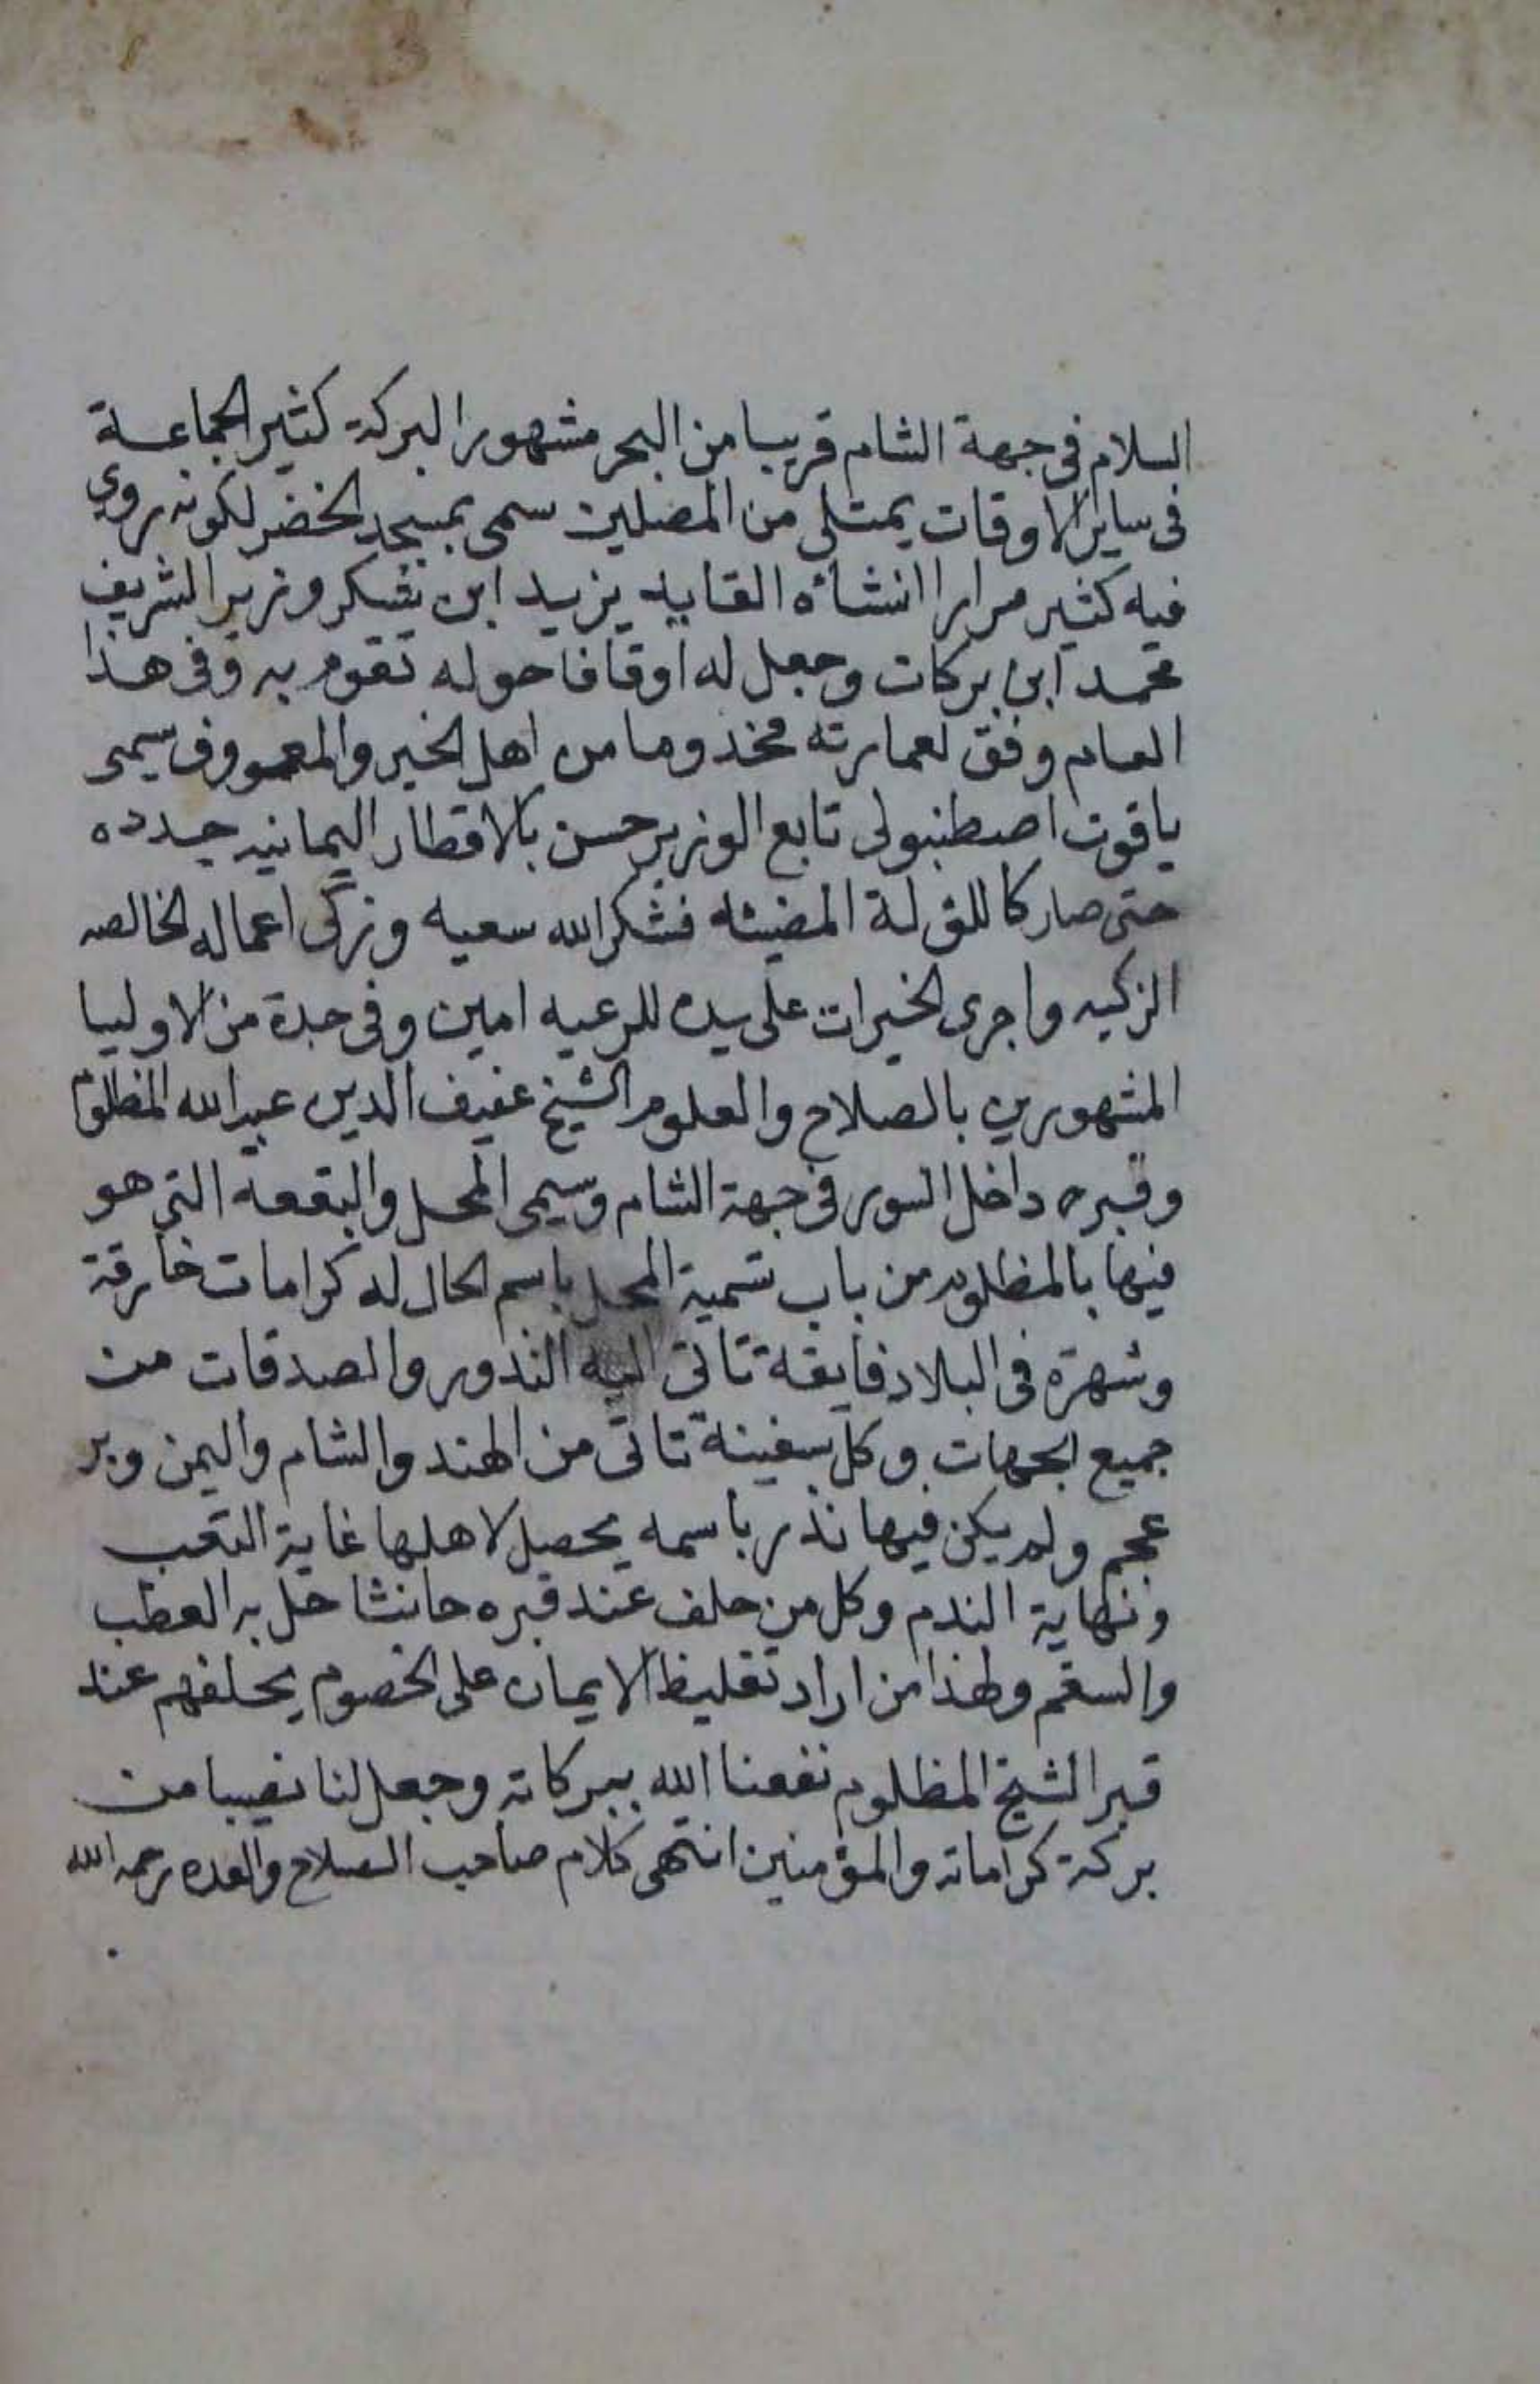 السلام في جهة الشام قريبا من البحر مشهورا البركة كثير الجماعة
في ساير الاوقات يمتلي من المصلين سمى بمسجد الخضر لكونه روي
فيه كثير مرارا انشاه القايد يزيد ابن شكر وزير الشريف
محمد ابن بركات وجعل له اوقافا حوله تقوم به وفى هذا
العام وفق لعمارته مخدوما من اهل الخير والمعروف يسمى
ياقوت اصطنبولى تابع الوزير حسن بالاقطار اليمانيه جدده
حتى صار كاللؤلة المضيئه فشكر الله سعيه وزكى اعماله الخالصه
الزكيه واجرى الخيرات على يده للرعيه امين وفى جدة من الاوليا
المشهورين بالصلاح والعلوم الشيخ عفيف الدين عبد الله المظلوم
وقبره داخل السور فى جهة الشام وسمى المحل والبقعه التي هو
فيها بالمظلوم من باب تسمية المحل باسم الحال له كرامات خارقة
وشهرة فى البلاد فايقة تاتى اليه الندور والصدقات من
جميع الجهات وكل سفينة تاتى من الهند والشام واليمن وبر
عجم ولم يكن فيها نذر باسمه يحصل لاهلها غاية التعب
ونهاية الندم وكل من حلف عند قبره حانثا حل به العطب
والسقم ولهذا من اراد تغليظ الايمان على الخصوم يحلفهم عند
قبر الشيخ المظلوم نفعنا الله ببركاته وجعل لنا نصيبا من
بركة كراماته والمؤمنين انتهى كلام صاحب السلاح والعده رحمه الله